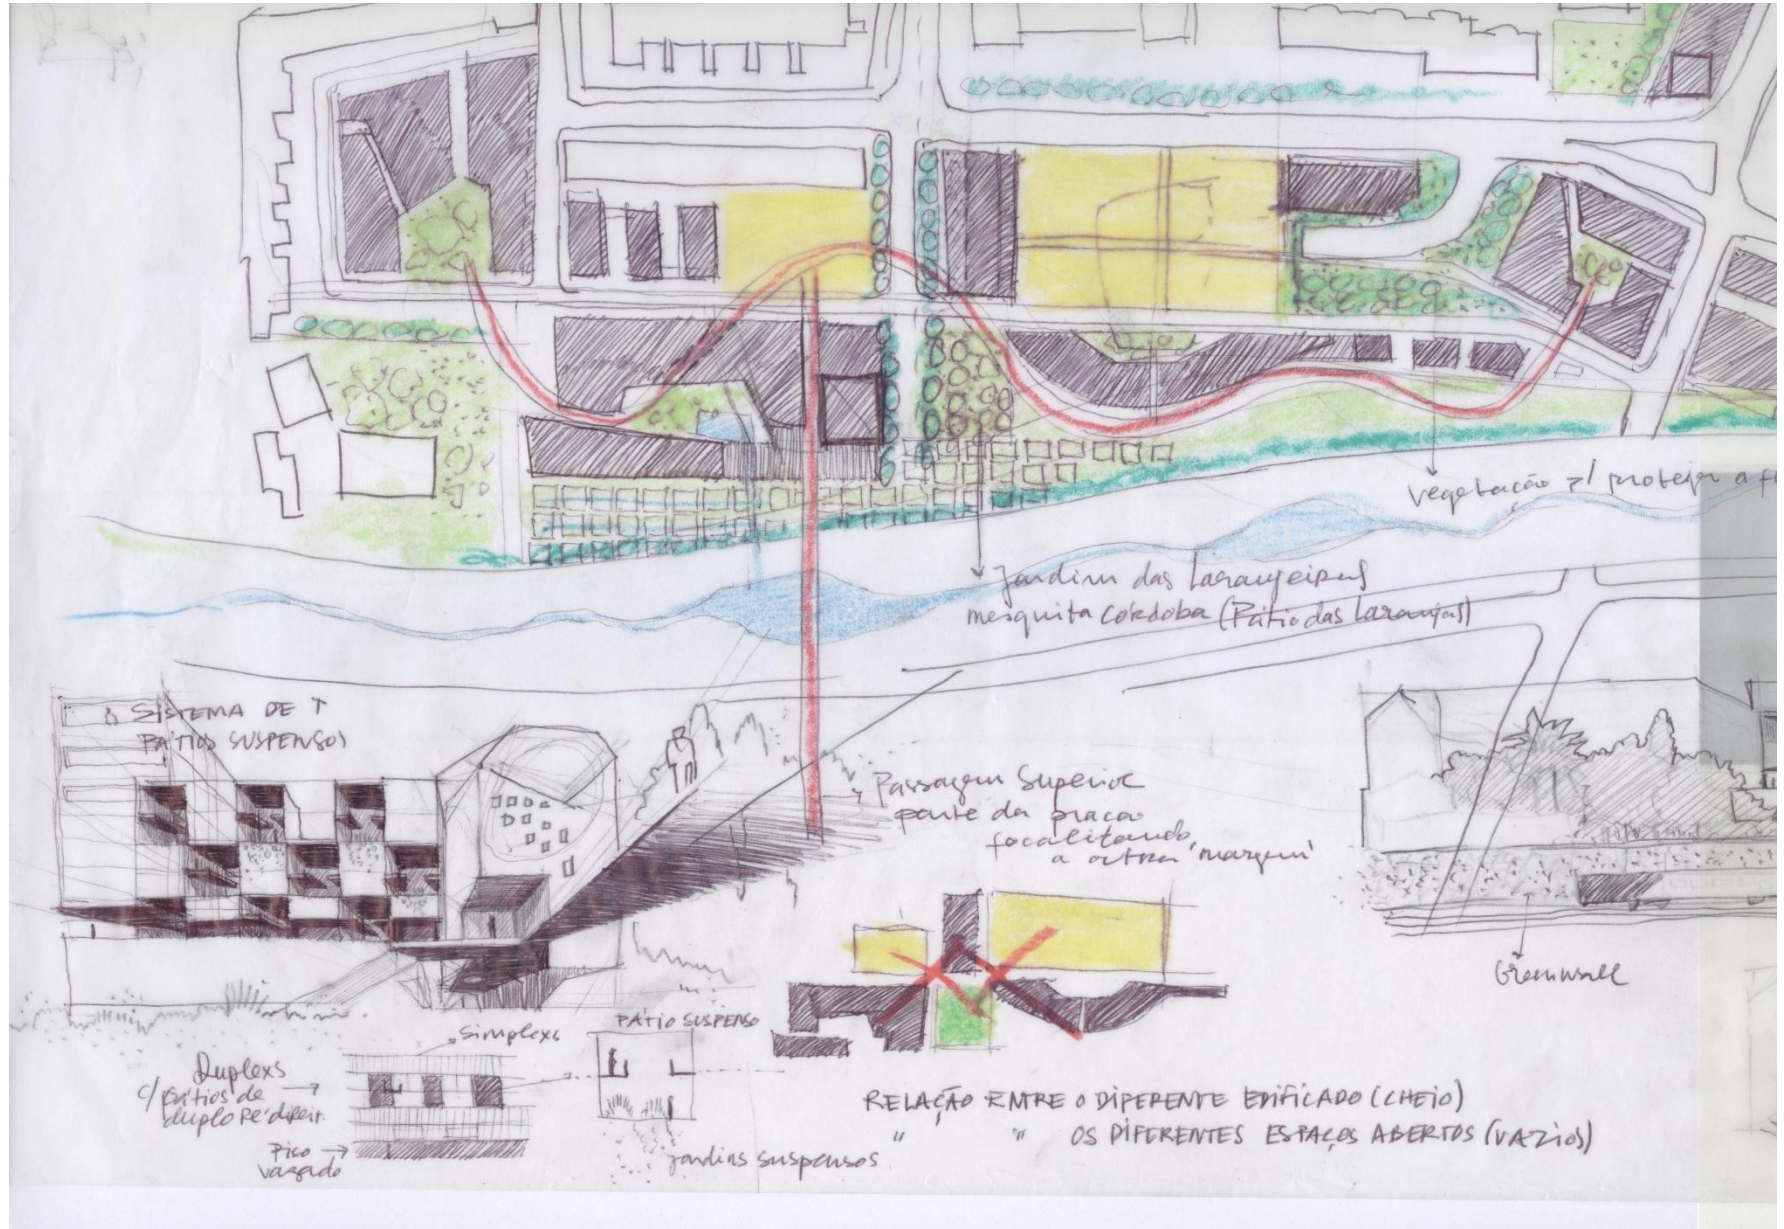 vegetação p/ proteger a
Jardim das Laranjeiras
mesquita córdoba (Pátio das Laranjas)
SISTEMA DE
PÁTIOS SUSPENSOS
Passagem Superior
parte da praça
focalizando
a outra 'margem'
Greenwall
Simplexs
PÁTIO SUSPENSO
Duplexs
c/ pátios de
duplo pé direit.
Piso
vazado
Jardins suspensos
RELAÇÃO ENTRE O DIFERENTE EDIFICADO (CHEIO)
" " OS DIFERENTES ESPAÇOS ABERTOS (VAZIOS)